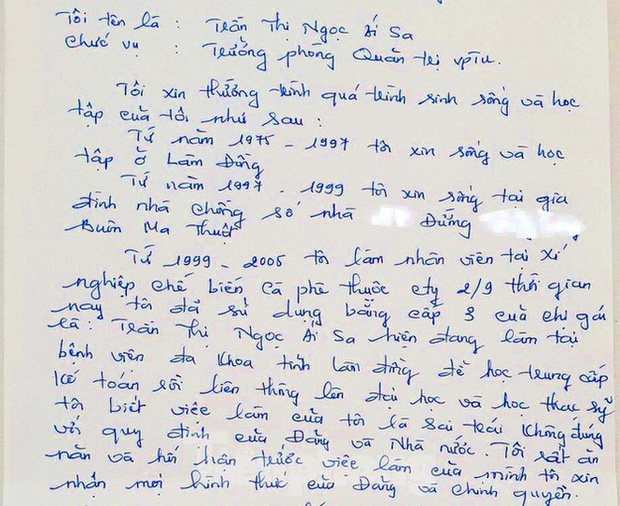 Tôi tên là : Trần Thị Ngọc Ái Sa
Chức vụ : Trưởng phòng Quản trị VPTU.
Tôi xin tường trình quá trình sinh sống và học
tập của tôi như sau :
Từ năm 1975 - 1997 tôi xin sống và học
tập ở Lâm Đồng
Từ năm 1997 - 1999 tôi xin sống tại gia
đình nhà chồng số nhà Đường
Buôn Ma Thuột
Từ 1999 - 2005 tôi làm nhân viên tại xí
nghiệp chế biến cà phê thuộc cty 2/9 thời gian
này tôi đã sử dụng bằng cấp 3 của chị gái
là : Trần Thị Ngọc Ái Sa hiện đang làm tại
bệnh viện đa khoa tỉnh Lâm Đồng để học trung cấp
kế toán rồi liên thông lên đại học và học thạc sỹ
tôi biết việc làm của tôi là sai trái không đúng
với quy định của Đảng và Nhà nước. Tôi rất ăn
năn và hối hận trước việc làm của mình tôi xin
nhận mọi hình thức của Đảng và chính quyền.